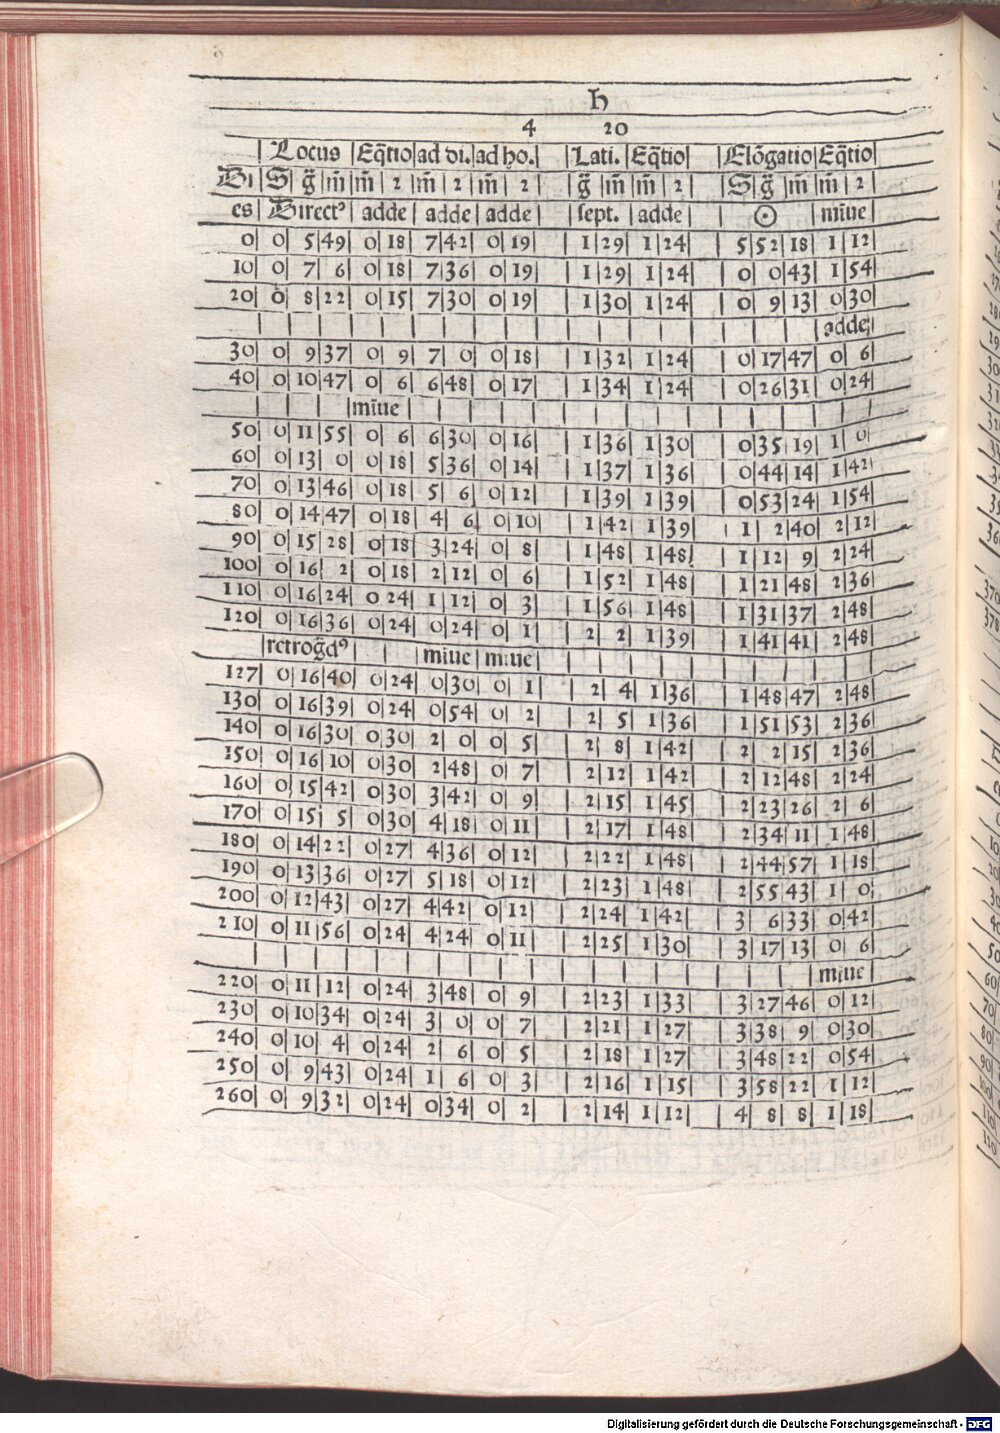 ♄
4 20
| Locus | Eq̃tio | ad di. | ad ho. | | Lati. | Eq̃tio | | Elõgatio | Eq̃tio |
Di | S | g̃ | m̃ | m̃ | 2 | m̃ | 2 | m̃ | 2 | | g̃ | m̃ | m̃ | 2 | | S | g̃ | m̃ | m̃ | 2 |
es | Directꝰ | adde | adde | adde | | sept. | adde | | ☉ | miũe |
0 | 0 | 5 | 49 | 0 | 18 | 7 | 42 | 0 | 19 | | 1 | 29 | 1 | 24 | | 5 | 52 | 18 | 1 | 12 |
10 | 0 | 7 | 6 | 0 | 18 | 7 | 36 | 0 | 19 | | 1 | 29 | 1 | 24 | | 0 | 0 | 43 | 1 | 54 |
20 | 0 | 8 | 22 | 0 | 15 | 7 | 30 | 0 | 19 | | 1 | 30 | 1 | 24 | | 0 | 9 | 13 | 0 | 30 |
adde
30 | 0 | 9 | 37 | 0 | 9 | 7 | 0 | 0 | 18 | | 1 | 32 | 1 | 24 | | 0 | 17 | 47 | 0 | 6 |
40 | 0 | 10 | 47 | 0 | 6 | 6 | 48 | 0 | 17 | | 1 | 34 | 1 | 24 | | 0 | 26 | 31 | 0 | 24 |
miũe
50 | 0 | 11 | 55 | 0 | 6 | 6 | 30 | 0 | 16 | | 1 | 36 | 1 | 30 | | 0 | 35 | 19 | 1 | 0 |
60 | 0 | 13 | 0 | 0 | 18 | 5 | 36 | 0 | 14 | | 1 | 37 | 1 | 36 | | 0 | 44 | 14 | 1 | 42 |
70 | 0 | 13 | 46 | 0 | 18 | 5 | 6 | 0 | 12 | | 1 | 39 | 1 | 39 | | 0 | 53 | 24 | 1 | 54 |
80 | 0 | 14 | 47 | 0 | 18 | 4 | 6 | 0 | 10 | | 1 | 42 | 1 | 39 | | 1 | 2 | 40 | 2 | 12 |
90 | 0 | 15 | 28 | 0 | 18 | 3 | 24 | 0 | 8 | | 1 | 48 | 1 | 48 | | 1 | 12 | 9 | 2 | 24 |
100 | 0 | 16 | 2 | 0 | 18 | 2 | 12 | 0 | 6 | | 1 | 52 | 1 | 48 | | 1 | 21 | 48 | 2 | 36 |
110 | 0 | 16 | 24 | 0 | 24 | 1 | 12 | 0 | 3 | | 1 | 56 | 1 | 48 | | 1 | 31 | 37 | 2 | 48 |
120 | 0 | 16 | 36 | 0 | 24 | 0 | 24 | 0 | 1 | | 2 | 2 | 1 | 39 | | 1 | 41 | 41 | 2 | 48 |
| retrog̃dꝰ | | | miũe | miũe |
127 | 0 | 16 | 40 | 0 | 24 | 0 | 30 | 0 | 1 | | 2 | 4 | 1 | 36 | | 1 | 48 | 47 | 2 | 48 |
130 | 0 | 16 | 39 | 0 | 24 | 0 | 54 | 0 | 2 | | 2 | 5 | 1 | 36 | | 1 | 51 | 53 | 2 | 36 |
140 | 0 | 16 | 30 | 0 | 30 | 2 | 0 | 0 | 5 | | 2 | 8 | 1 | 42 | | 2 | 2 | 15 | 2 | 36 |
150 | 0 | 16 | 10 | 0 | 30 | 2 | 48 | 0 | 7 | | 2 | 12 | 1 | 42 | | 2 | 12 | 48 | 2 | 24 |
160 | 0 | 15 | 42 | 0 | 30 | 3 | 42 | 0 | 9 | | 2 | 15 | 1 | 45 | | 2 | 23 | 26 | 2 | 6 |
170 | 0 | 15 | 5 | 0 | 30 | 4 | 18 | 0 | 11 | | 2 | 17 | 1 | 48 | | 2 | 34 | 11 | 1 | 48 |
180 | 0 | 14 | 22 | 0 | 27 | 4 | 36 | 0 | 12 | | 2 | 22 | 1 | 48 | | 2 | 44 | 57 | 1 | 18 |
190 | 0 | 13 | 36 | 0 | 27 | 5 | 18 | 0 | 12 | | 2 | 23 | 1 | 48 | | 2 | 55 | 43 | 1 | 0 |
200 | 0 | 12 | 43 | 0 | 27 | 4 | 42 | 0 | 12 | | 2 | 24 | 1 | 42 | | 3 | 6 | 33 | 0 | 42 |
210 | 0 | 11 | 56 | 0 | 24 | 4 | 24 | 0 | 11 | | 2 | 25 | 1 | 30 | | 3 | 17 | 13 | 0 | 6 |
miũe
220 | 0 | 11 | 12 | 0 | 24 | 3 | 48 | 0 | 9 | | 2 | 23 | 1 | 33 | | 3 | 27 | 46 | 0 | 12 |
230 | 0 | 10 | 34 | 0 | 24 | 3 | 0 | 0 | 7 | | 2 | 21 | 1 | 27 | | 3 | 38 | 9 | 0 | 30 |
240 | 0 | 10 | 4 | 0 | 24 | 2 | 6 | 0 | 5 | | 2 | 18 | 1 | 27 | | 3 | 48 | 22 | 0 | 54 |
250 | 0 | 9 | 43 | 0 | 24 | 1 | 6 | 0 | 3 | | 2 | 16 | 1 | 15 | | 3 | 58 | 22 | 1 | 12 |
260 | 0 | 9 | 32 | 0 | 24 | 0 | 34 | 0 | 2 | | 2 | 14 | 1 | 12 | | 4 | 8 | 8 | 1 | 18 |
Digitalisierung gefördert durch die Deutsche Forschungsgemeinschaft - DFG